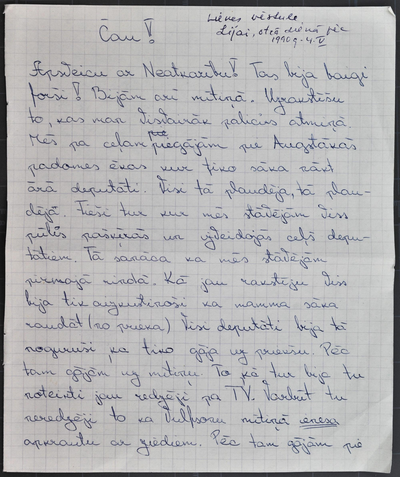 Lienes vēstule
Lijai, otrā dienā pēc
1990.g. 4. V
Čau!
Apsveicu ar Neatkarību! Tas bija baigi
forši! Bijām arī mītiņā. Uzrakstīšu
to, kas man visvairāk palicis atmiņā.
Mēs pa ceļam piegājām pie Augstākās
padomes ēkas kur tiko sāka nākt
ārā deputāti. Visi tā plaudēja, tā plau-
dēja. Tieši tur kur mēs stāvējām viss
pūlis pašķīrās un izveidojās ceļš depu-
tātiem. Tā sanāca ka mēs stāvējām
pirmajā rindā. Kā jau rakstīju viss
bija tik aizkustinoši ka mamma sāka
raudāt (no prieka) Visi deputāti bija tā
noguruši, ka tiko gāja uz priekšu. Pēc
tam gājām uz mītiņu. To kā tur bija tu
noteikti jau redzēji pa TV. Varbūt tu
neredzēji to ka Vulfsonu mītiņā ienesa
apkrautu ar ziediem. Pēc tam gājām pie